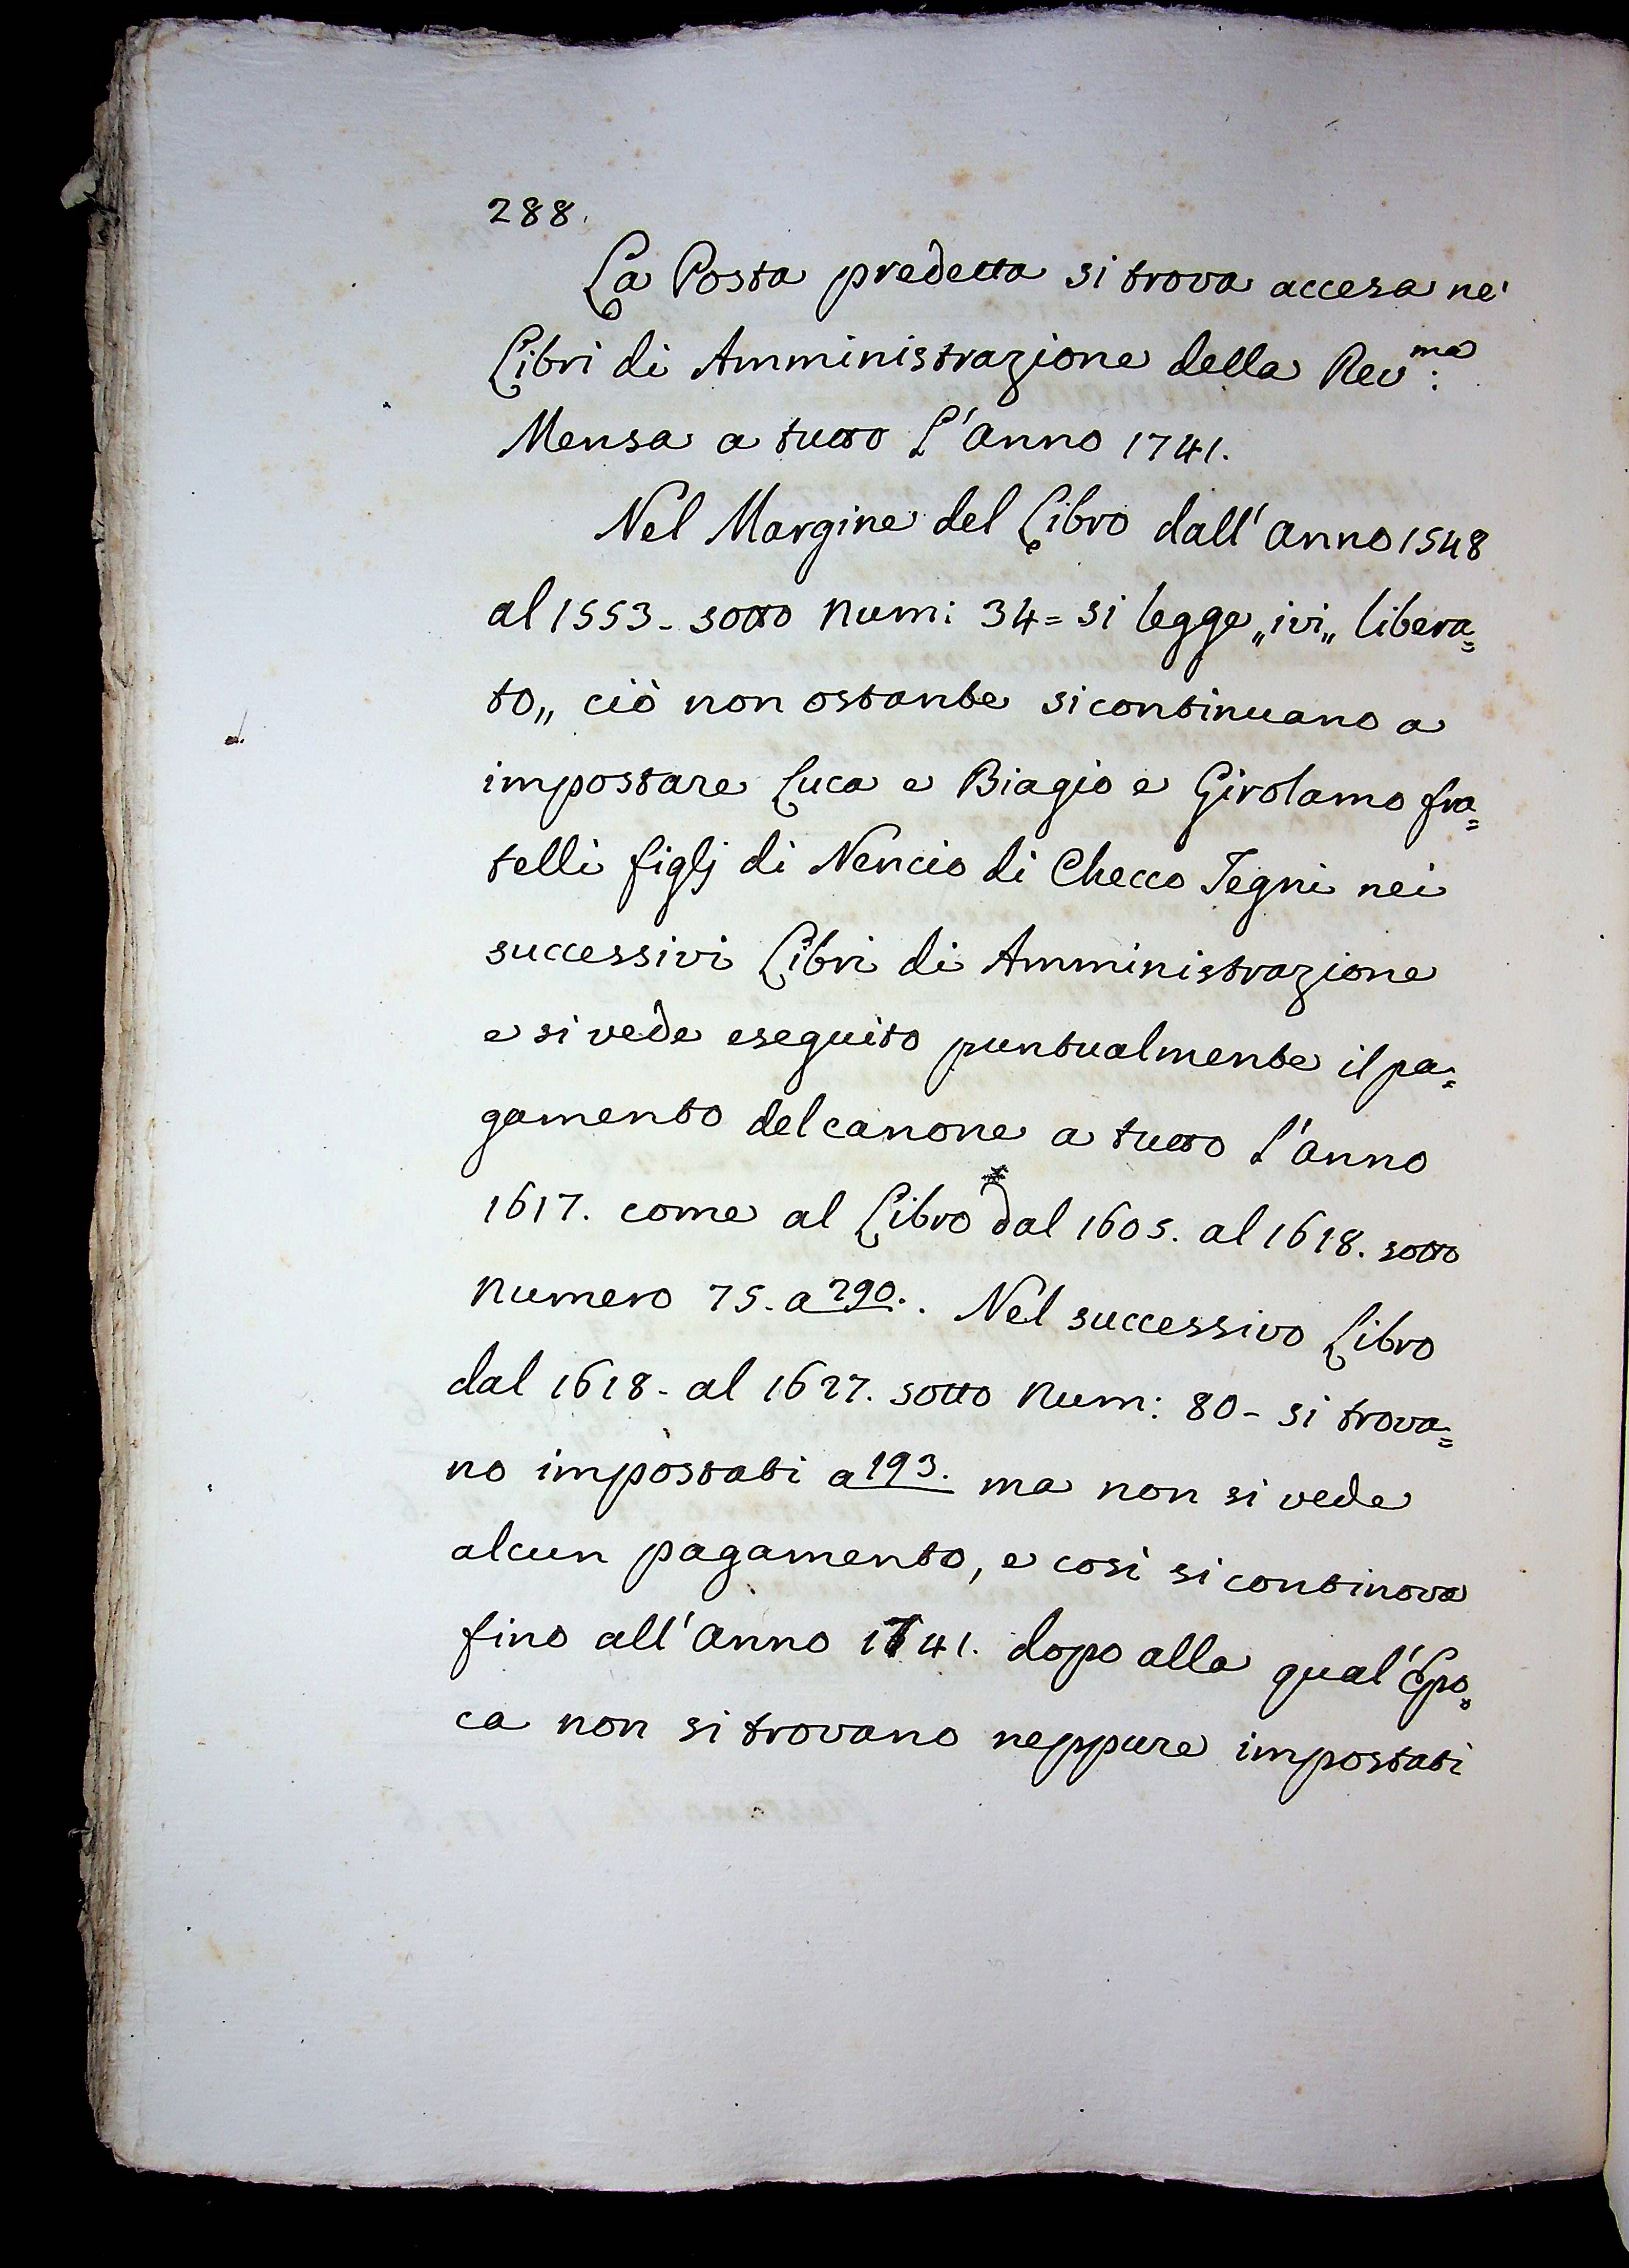 288.
La Posta predetta si trova accesa ne'
Libri di Amministrazione della Rev:ma
Mensa a tutto L'anno 1741.
Nel Margine del Libro dall'anno 1548
al 1553- sotto Num: 34= si legge „ivi„ libera=
to„ ciò non ostante si continuano a
impostare Luca e Biagio e Girolamo fra=
telli figlj di Nencio di Checco Tegni nei
successivi Libri di Amministrazione
e si vede eseguito puntualmente il pa=
gamento del canone a tutto l'anno
1617. come al Libro dal 1605. al 1618. sotto
Numero 75. a 290.. Nel successivo Libro
dal 1618- al 1627. sotto Num: 80- si trova=
no impostati a 193. ma non si vede
alcun pagamento, e così si continova
fino all'anno 1741. dopo alla qual'Epo=
ca non si trovano neppure impostati